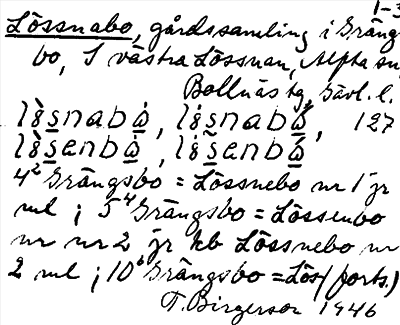 1-3
Lössnabo, gårdssamling i Gräng
bo, S västra Lössnan, Alfta sn,
Bollnäs tg, Gävl. l.
lösnabo, lösnabo, 127
lösenbo, lösenbo
4² Grängsbo = Lössnebo nr 1 jr
ml ; 5⁴ Grängsbo = Lössenbo
nr nr 2 jr kb Lössnebo nr
2 ml ; 10⁶ Grängsbo = Lös (forts.)
T. Birgerson 1946